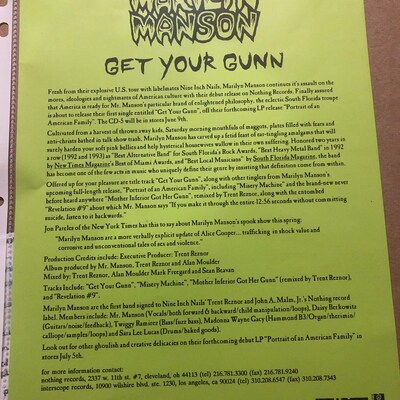 MARILYN
MANSON
GET YOUR GUNN
Fresh from their explosive U.S. tour with labelmates Nine Inch Nails, Marilyn Manson continues it's assault on the
mores, ideologies and nightmares of American culture with their debut release on Nothing Records. Finally assured
that America is ready for Mr. Manson's particular brand of enlightened philosophy, the eclectic South Florida troupe
is about to release their first single entitled "Get Your Gunn", off their forthcoming LP release "Portrait of an
American Family". The CD-5 will be in stores June 9th.
Cultivated from a harvest of thrown away kids, Saturday morning mouthfuls of maggots, plates filled with feats and
anti-christs bathed in talk show truth, Marilyn Manson has carved up a fetid feast of ear-tingling amalgams that will
surely harden your soft pink bellies and help hysterical housewives wallow in their own suffering. Honored two years in
a row (1992 and 1993) as "Best Alternative Band" for South Florida's Rock Awards, "Best Heavy Metal Band" in 1992
by New Times Magazine's Best of Miami Awards, and "Best Local Musicians" by South Florida Magazine, the band
has become one of the few acts in music who uniquely define their genre by insisting that definition come from within.
Offered up for your pleasure are title track "Get Your Gunn", along with other tinglers from Marilyn Manson's
upcoming full-length release, "Portrait of an American Family", including "Misery Machine" and the heard-new never
before heard anywhere "Mother Inferior Got Her Gunn", remixed by Trent Reznor, along with the extended
"Revelation #9" about which Mr. Manson says "If you make it through the entire 12:56 seconds without committing
suicide, listen to it backwards."
Jon Pareles of the New York Times has this to say about Marilyn Manson's spook show this spring:
"Marilyn Manson are a more verbally explicit update of Alice Cooper... trafficking in shock value and
corrosive and unconventional tales of sex and violence."
Production Credits include: Executive Producer: Trent Reznor
Album produced by Mr. Manson, Trent Reznor and Alan Moulder
Mixed by: Trent Reznor, Alan Moulder Mark Freegard and Sean Beavan
Tracks Include: "Get Your Gunn", "Misery Machine", "Mother Inferior Got Her Gunn" (remixed by Trent Reznor),
and "Revelation #9".
Marilyn Manson are the first band signed to Nine Inch Nails' Trent Reznor and John A. Malm, Jr.'s Nothing record
label. Members include: Mr. Manson (Vocals/both forward & backward/child manipulation/loops), Daisy Berkowitz
(Guitars/noise/feedback), Twiggy Ramirez (Bass/fuzz bass), Madonna Wayne Gacy (Hammond B3/Organ/theremin/
calliope/samples/loops) and Sara Lee Lucas (Drums/baked goods).
Look out for other ghoulish and creative delicacies on their forthcoming debut LP "Portrait of an American Family" in
stores July 5th.
for more information contact:
nothing records, 2337 w. 11th st. #7, cleveland, oh 44113 (tel) 216.781.3300 (fax) 216.781.9240
interscope records, 10900 wilshire blvd. ste. 1230, los angeles, ca 90024 (tel) 310.208.6547 (fax) 310.208.7343